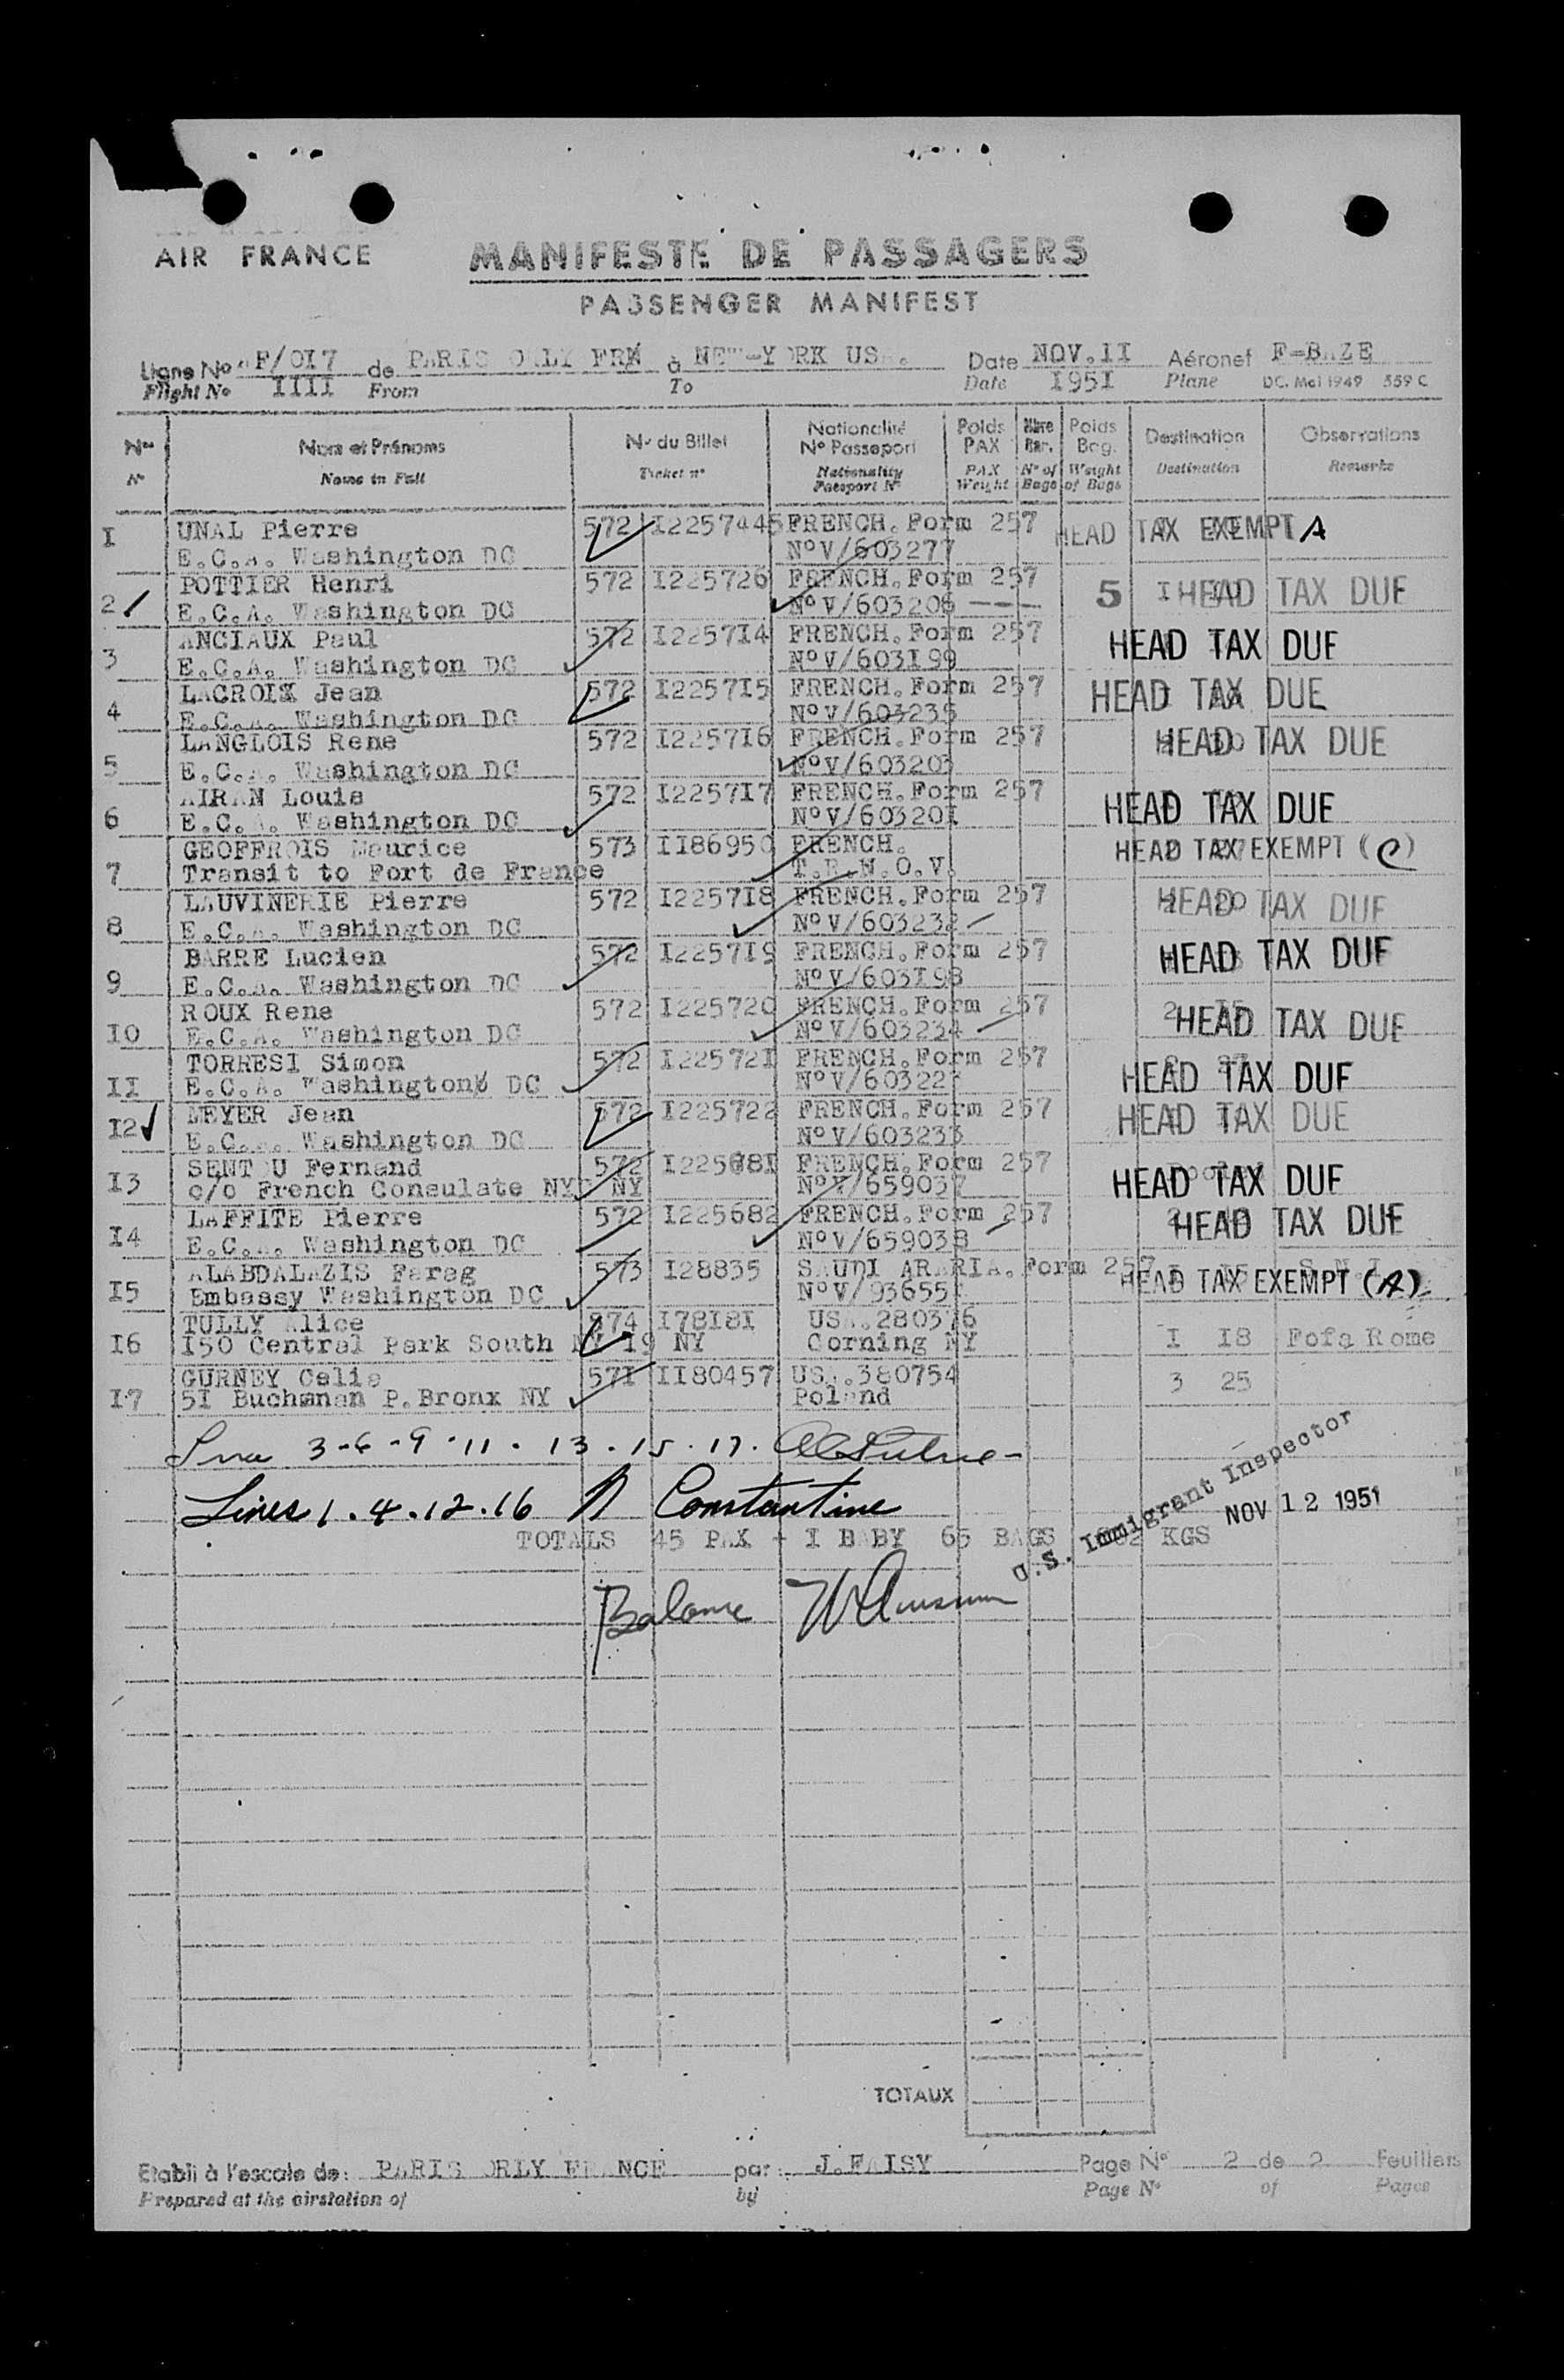 AIR FRANCE MANIFESTE DE PASSAGERS
PASSENGER MANIFEST
Ligne No AF/OI7 de PARIS ORLY FRN à NEW-YORK USA. Date NOV.II Aéronef F-BAZE
Flight No IIII From To Date I95I Plane DC. Mai 1949 559 C
Nos Noms et Prénoms No du Billet Nationalité No Passeport Poids PAX Nbre Bag. Poids Bag. Destination Observations
No Names in Full Ticket no Nationality Passport No PAX Weight No of Bags Weight of Bags Destination Remarks
I UNAL Pierre 572 I2257445 FRENCH. Form 257 HEAD TAX EXEMPT A
E.C.A. Washington DC No V/603277
2 POTTIER Henri 572 I225726 FRENCH. Form 257 5 HEAD TAX DUE
E.C.A. Washington DC No V/603206 ----
3 ANCIAUX Paul 572 I2257I4 FRENCH. Form 257 HEAD TAX DUE
E.C.A. Washington DC No V/603I99
4 LACROIX Jean 572 I2257I5 FRENCH. Form 257 HEAD TAX DUE
E.C.A. Washington DC No V/603235
5 LANGLOIS Rene 572 I225716 FRENCH. Form 257 HEAD TAX DUE
E.C.A. Washington DC No V/603203
6 AIRAN Louis 572 I2257I7 FRENCH. Form 257 HEAD TAX DUE
E.C.A. Washington DC No V/60320I
7 GEOFFROIS Maurice 573 II86950 FRENCH. HEAD TAX EXEMPT (C)
Transit to Fort de France T.R.N.O.V.
8 LAUVINERIE Pierre 572 I2257I8 FRENCH. Form 257 HEAD TAX DUE
E.C.A. Washington DC No V/603232
9 BARRE Lucien 572 I2257I9 FRENCH. Form 257 HEAD TAX DUE
E.C.A. Washington DC No V/603I98
IO ROUX Rene 572 I225720 FRENCH. Form 257 2 I5 HEAD TAX DUE
E.C.A. Washington DC No V/603234
II TORRESI Simon 572 I22572I FRENCH. Form 257 HEAD TAX DUE
E.C.A. Washington DC No V/603223
I2 MEYER Jean 572 I225722 FRENCH. Form 257 HEAD TAX DUE
E.C.A. Washington DC No V/603233
I3 SENTOU Fernand 572 I22568I FRENCH. Form 257 HEAD TAX DUE
c/o French Consulate NYC NY No V/659037
I4 LAFFITE Pierre 572 I225682 FRENCH. Form 257 HEAD TAX DUE
E.C.A. Washington DC No V/659038
I5 ALABDALAZIS Farag 573 I28835 SAUDI ARARIA. Form 257 HEAD TAX EXEMPT (A)
Embassy Washington DC No V/93655
I6 TULLY Alice 574 I78I8I USA.280376 I I8 Fofa Rome
I50 Central Park South NY I9 NY Corning NY
I7 GURNEY Celia 57I II80457 USA.380754 3 25
5I Buchanan P. Bronx NY Poland
3-6-9-11-13-15-17.
Lines 1.4.12.16 Constantine
U.S. Immigrant Inspector NOV 12 1951
TOTALS 45 PAX + I BABY 65 BAGS KGS
Balance
TOTAUX
Etabli à l'escale de: PARIS ORLY FRANCE par: J.FAISY Page No 2 de 2 Feuillets
Prepared at the airstation of by Page No of Pages